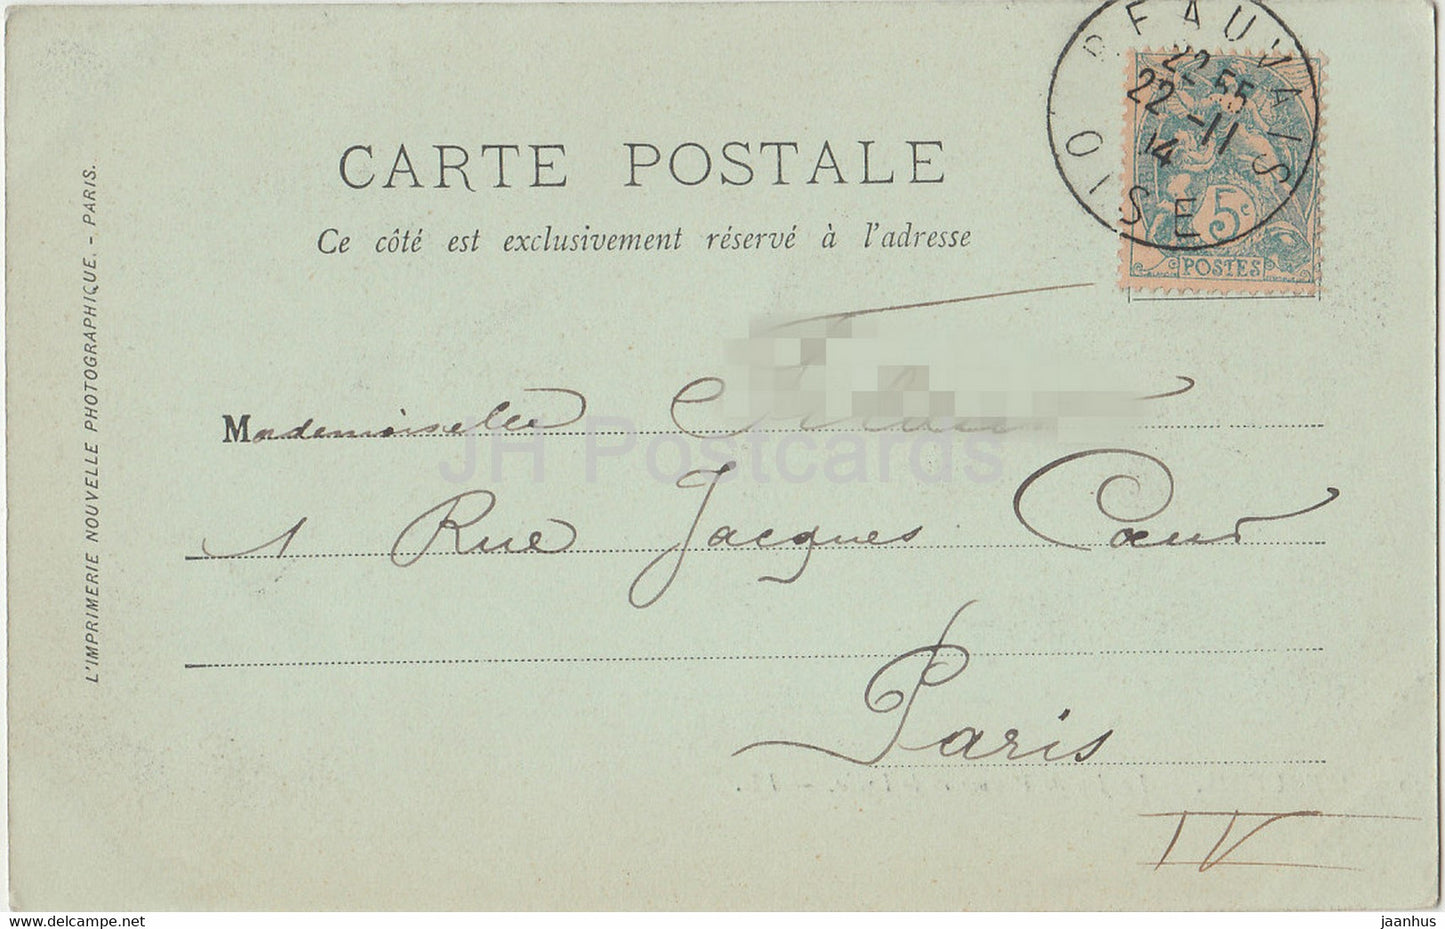 CARTE POSTALE
Ce côté est exclusivement réservé à l'adresse
L'IMPRIMERIE NOUVELLE PHOTOGRAPHIQUE. - PARIS.
BEAUVAIS
OISE
22 55
22 - 11
14
5c
POSTES
Mademoiselle
1 Rue Jacques Cœur
Paris
IV
JH Postcards
www.delcampe.net
jaanhus